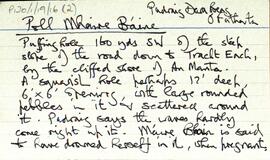 P120/1/9/16 (2)
Poll Mhaire Báine
Puffing Hole 160 yds SW of the steep
slope of the road down to Tracht Each,
by the cliffed shore of An Mantia.
Squarish Hole perhaps 12' deep,
6' x 6' opening, with large rounded
pebbles in it & scattered around
it. Padraig says the waves hardly
come right up it. Maire Bhán is said
to have drowned herself in it, when pregnant,